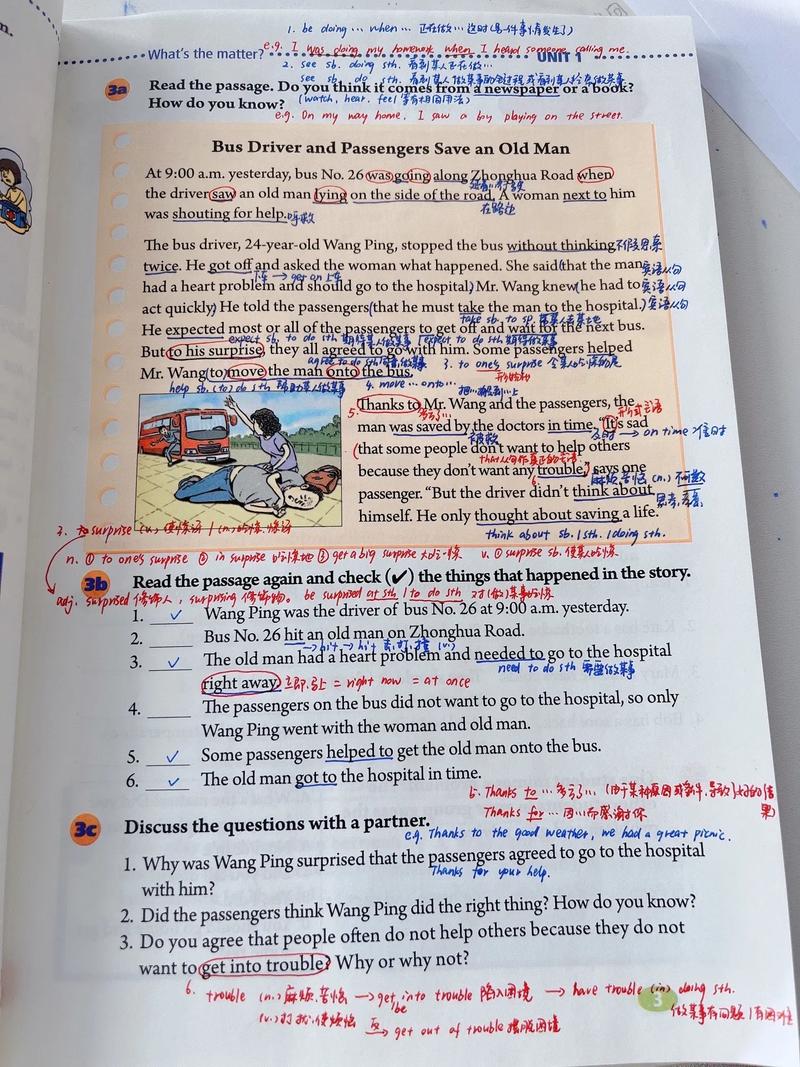 1. be doing … when … 正在做…这时(另一件事情发生了)
What's the matter? e.g. I was doing my homework when I heard someone calling me. UNIT 1
2. see sb. doing sth. 看到某人正在做…
see sb. do sth. 看到某人做某事的全过程或看到某人经常做某事
3a Read the passage. Do you think it comes from a newspaper or a book?
How do you know? (watch, hear, feel 等有相同用法)
e.g. On my way home, I saw a boy playing on the street.
Bus Driver and Passengers Save an Old Man
At 9:00 a.m. yesterday, bus No. 26 was going along Zhonghua Road when
the driver saw an old man lying on the side of the road. A woman next to him
在路边
was shouting for help. 呼救
The bus driver, 24-year-old Wang Ping, stopped the bus without thinking 不假思索
twice. He got off and asked the woman what happened. She said (that the man 宾语从句
下车 → get on 上车
had a heart problem and should go to the hospital.) Mr. Wang knew (he had to 宾语从句
act quickly.) He told the passengers (that he must take the man to the hospital.) 宾语从句
take sb. to sp.
He expected most or all of the passengers to get off and wait for the next bus.
expect sb. to do sth 期待某人做某事 expect to do sth 期待做某事
But to his surprise, they all agreed to go with him. Some passengers helped
agree to do sth 同意做某事 3. to one's surprise
Mr. Wang (to) move the man onto the bus.
help sb. (to) do sth 帮助某人做某事 4. move … onto …
把…搬到…上
5. Thanks to Mr. Wang and the passengers, the
多亏了…
man was saved by the doctors in time. "It's sad
被救 及时 → on time 准时
(that some people don't want to help others
because they don't want any trouble," says one
6. 麻烦,苦恼 (n.) 不可数
passenger. "But the driver didn't think about
思考,考虑
himself. He only thought about saving a life."
think about sb. / sth. / doing sth.
n. ① to one's surprise ② in surprise 吃惊地 ③ get a big surprise 大吃一惊 v. ① surprise sb. 使某人吃惊
3b Read the passage again and check (✔) the things that happened in the story.
adj. surprised 修饰人, surprising 修饰物。 be surprised at sth / to do sth 对(做)某事吃惊
1. ✓ Wang Ping was the driver of bus No. 26 at 9:00 a.m. yesterday.
2. Bus No. 26 hit an old man on Zhonghua Road.
→ hit → hit
3. ✓ The old man had a heart problem and needed to go to the hospital
need to do sth 需要做某事
right away. 立即,马上 = right now = at once
4. The passengers on the bus did not want to go to the hospital, so only
Wang Ping went with the woman and old man.
5. ✓ Some passengers helped to get the old man onto the bus.
6. ✓ The old man got to the hospital in time.
5. Thanks to … 多亏了…
Thanks for … 因…而感谢你
3c Discuss the questions with a partner.
e.g. Thanks to the good weather, we had a great picnic.
1. Why was Wang Ping surprised that the passengers agreed to go to the hospital
Thanks for your help.
with him?
2. Did the passengers think Wang Ping did the right thing? How do you know?
3. Do you agree that people often do not help others because they do not
want to get into trouble? Why or why not?
6. trouble (n.) 麻烦,苦恼 → get into trouble 陷入困境 → have trouble (in) doing sth.
be 3 做某事有问题/有困难
(v.) 打扰,使烦恼 反→ get out of trouble 摆脱困境